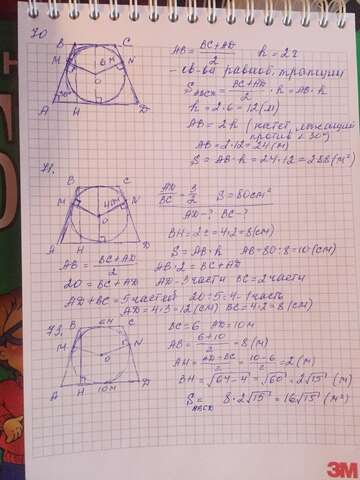 70
B C
M 6м N
O
A 30° H D
AB = BC+AD / 2 h = 2r
- св-ва равноб. трапеции
S ABCD = BC+AD / 2 · h = AB · h
h = 2·6 = 12 (м)
AB = 2h (катет, лежащий против ∠30°)
AB = 2·12 = 24 (м)
S = AB·h = 24·12 = 288 (м²)
71.
B C
M 4см N
O
A H D
AD / BC = 3 / 2 S = 80см²
AD - ? BC - ?
BH = 2r = 4·2 = 8 (см)
S = AB·h AB = 80:8 = 10 (см)
AB = BC+AD / 2 AB·2 = BC+AD
20 = BC+AD AD - 3 части BC = 2 части
AD+BC = 5 частей 20:5 = 4 - 1 часть
AD = 4·3 = 12 (см) BC = 4·2 = 8 (см)
B 6м C
M r N
O
A H 10м D
BC = 6 AD = 10м
AB = 6+10 / 2 = 8 (м)
AH = AD-BC / 2 = 10-6 / 2 = 2 (м)
BH = √64-4 = √60 = 2√15 (м)
S ABCD = 8·2√15 = 16√15 (м²)
3M